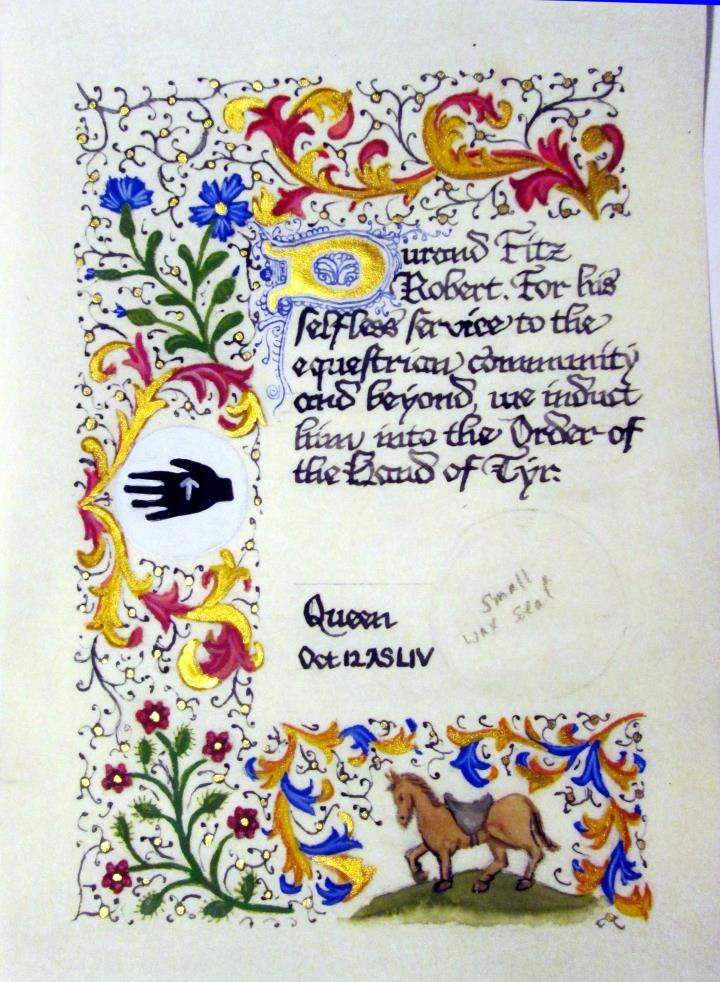 Durand Fitz
Robert. For his
selfless service to the
equestrian community
and beyond, we induct
him into the Order of
the Hand of Tyr.
Queen
Oct 12 ASLIV
small
wax seal